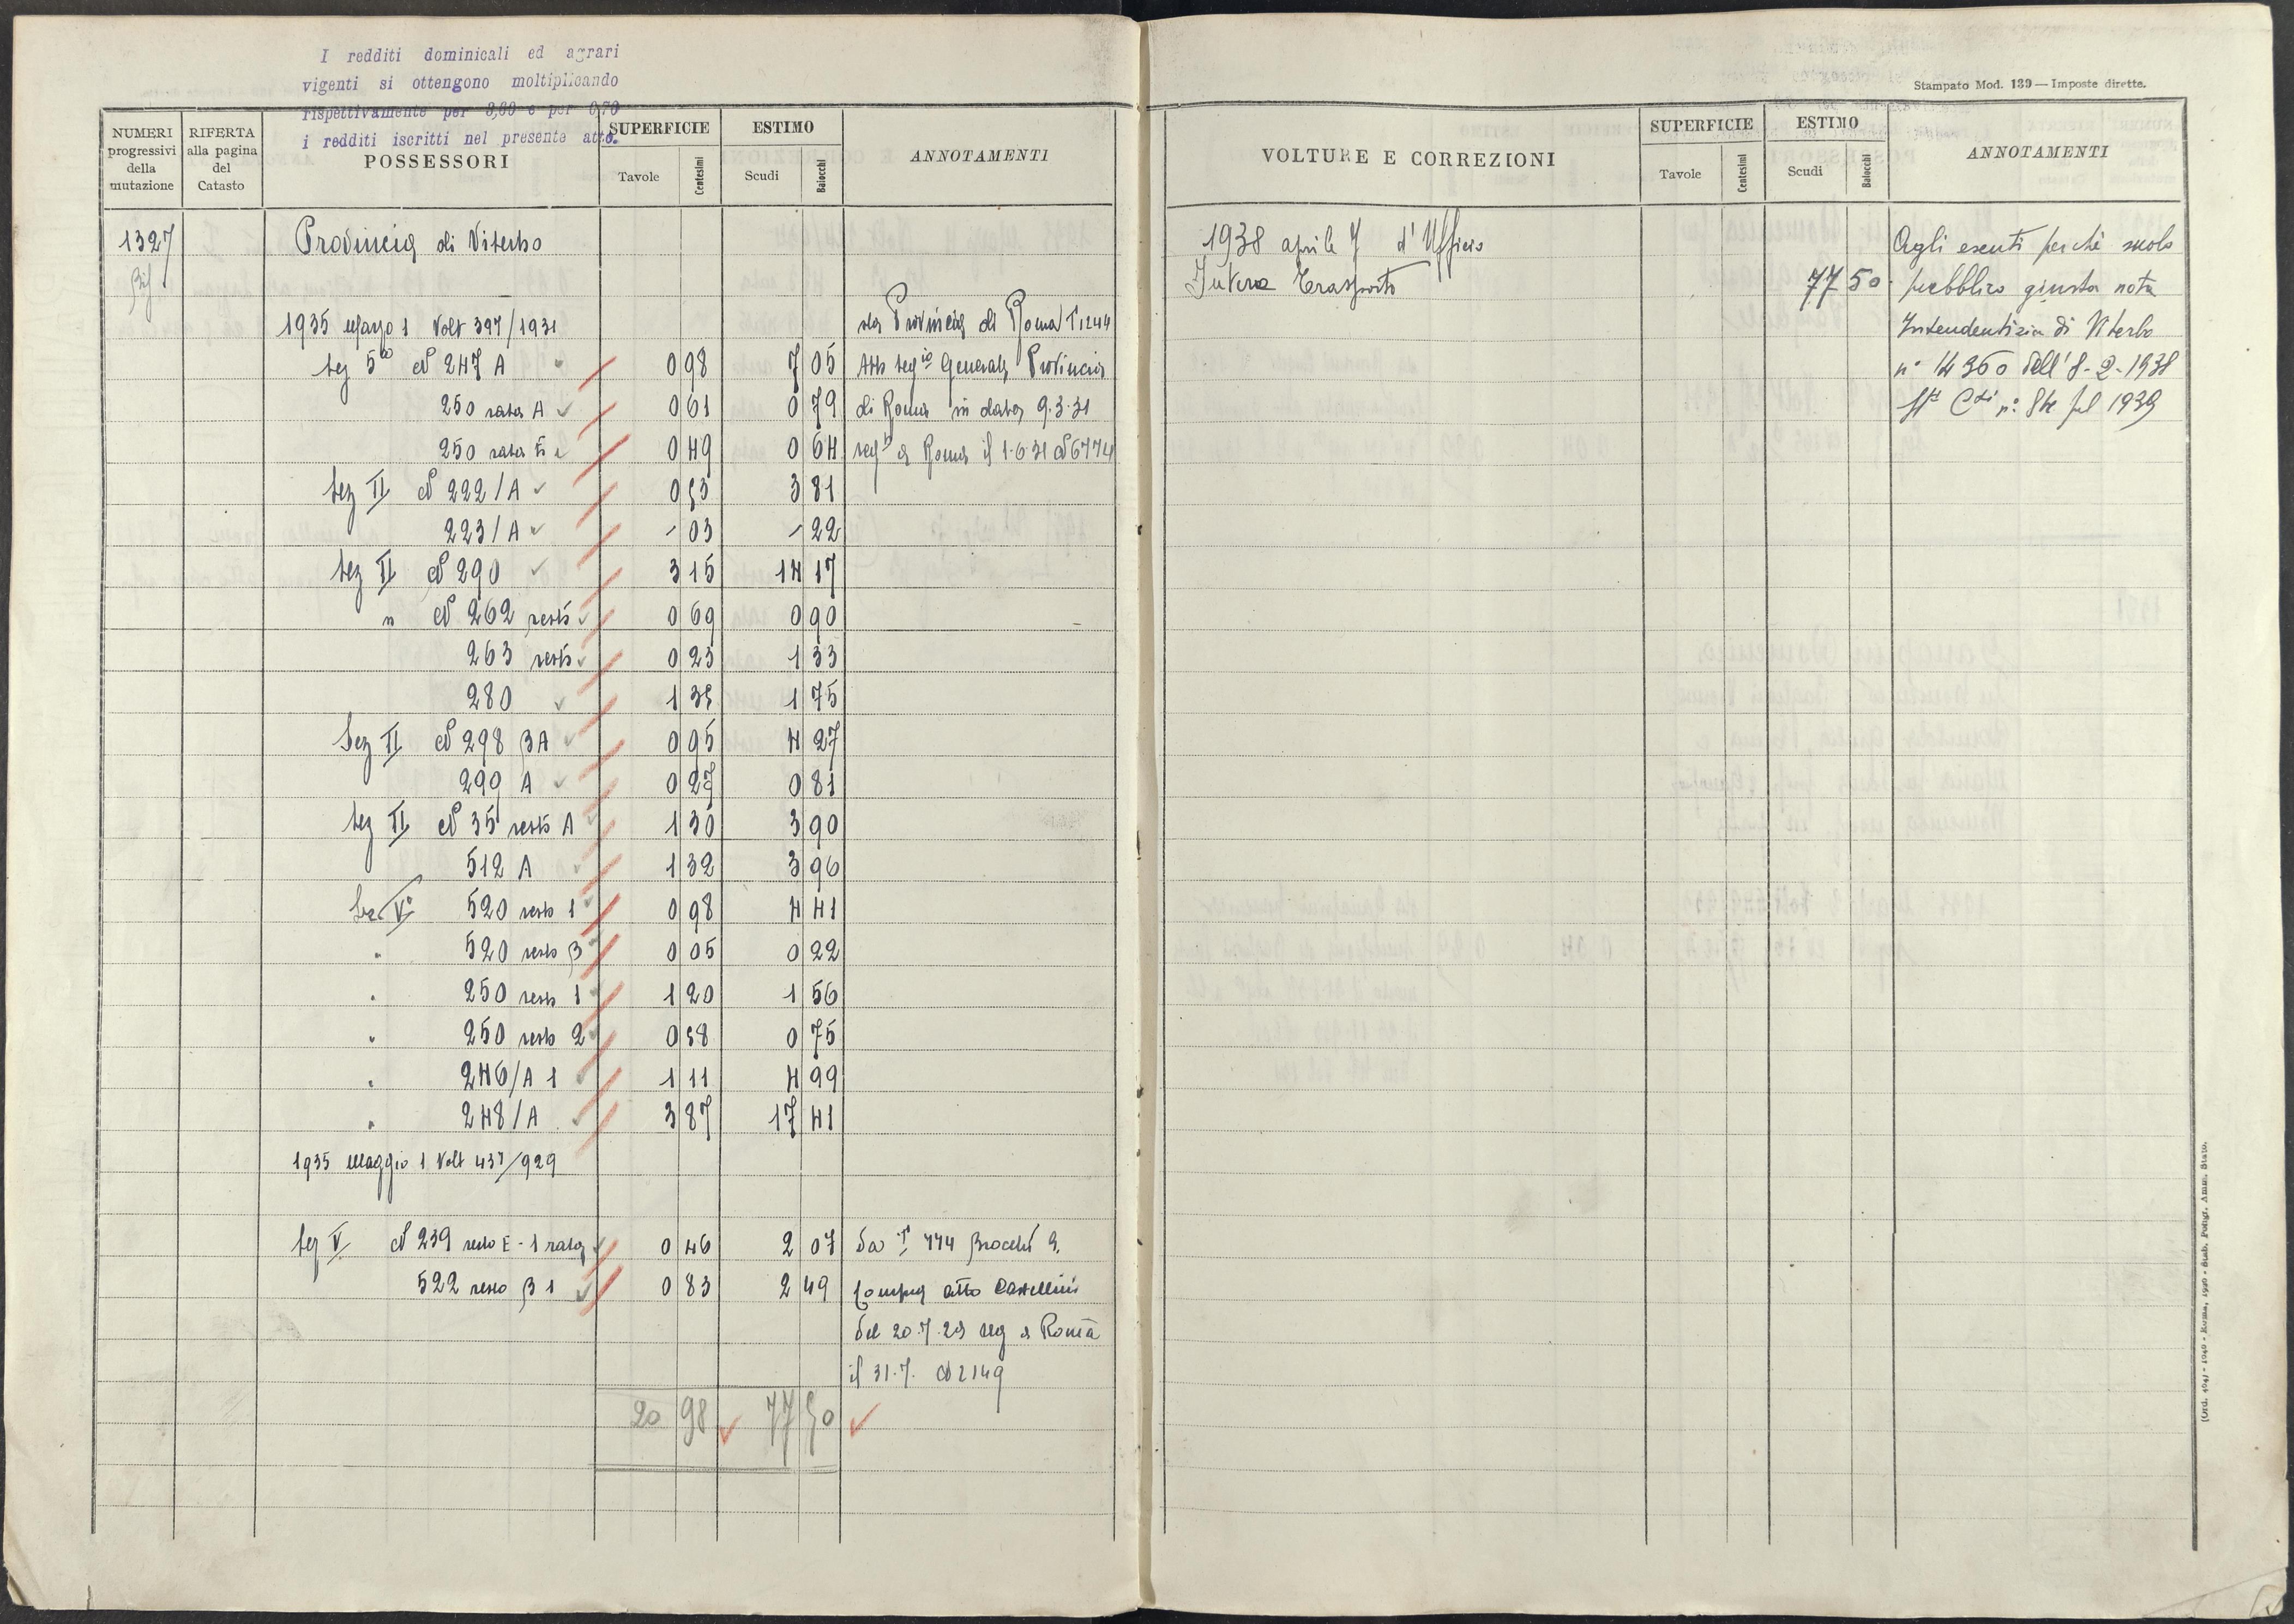 I redditi dominicali ed agrari
vigenti si ottengono moltiplicando
rispettivamente per e per
i redditi iscritti nel presente atto.
NUMERI progressivi della mutazione
RIFERTA alla pagina del Catasto
POSSESSORI
SUPERFICIE
Tavole Centesimi
ESTIMO
Scudi Baiocchi
ANNOTAMENTI
1327 Provincia di Viterbo
1935 Maggio 1 Volt 397/1931 da Provincia di Roma 1244
Sez 5 N 247 A 0 98 7 05 Atto Generale Provincia
250 rata A 0 61 0 79 di Roma in data 9.3.31
250 rata 0 49 0 64 a Roma il 1.6.31 N 6774
Sez II N 222/A 0 53 3 81
223/A - 03 - 22
Sez II N 290 3 15 14 17
" N 262 resto 0 69 0 90
263 resto 0 23 1 33
280 1 35 1 75
Sez II N 298 BA 0 95 4 27
299 A 0 27 0 81
Sez II N 35 resto A 1 30 3 90
512 A 1 32 3 96
Sez V° 520 resto 1 0 98 4 41
" 520 resto B 0 05 0 22
" 250 resto 1 1 20 1 56
" 250 resto 2 0 58 0 75
" 246/A 1 1 11 4 99
" 248/A 3 87 17 41
1935 Maggio 1 Volt 437/929
Sez V N 239 resto E - 1 rata 0 46 2 07 Da 774
522 resto B 1 0 83 2 49 Compra atto Castellini
del 20.7.29 reg a Roma
il 31.7. N 2149
20 98 77 50
Stampato Mod. 139 — Imposte dirette.
VOLTURE E CORREZIONI
SUPERFICIE
Tavole Centesimi
ESTIMO
Scudi Baiocchi
ANNOTAMENTI
1938 aprile 7 d'Ufficio Agli esenti perchè suolo
Intera Trasporto 77 50 pubblico giusta nota
Intendentizia di Viterbo
n° 14360 dell' 8-2-1938
n° 84 1939
- Roma, 1930 - Stab. Poligr. Amm. Stato.